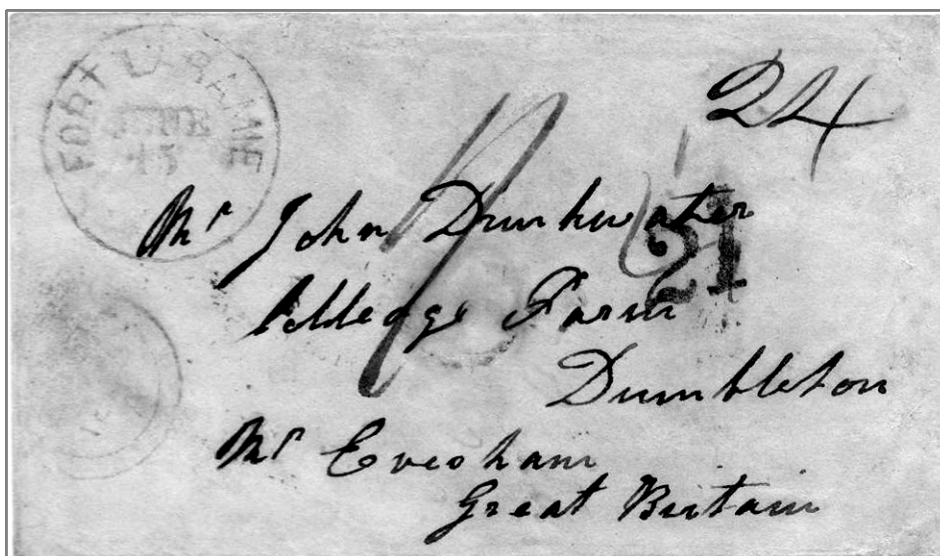 FORT LARAMIE
JUNE
15
24
21
Mr John Drinkwater
Farm
Dumbleton
Nr Evesham
Great Britain